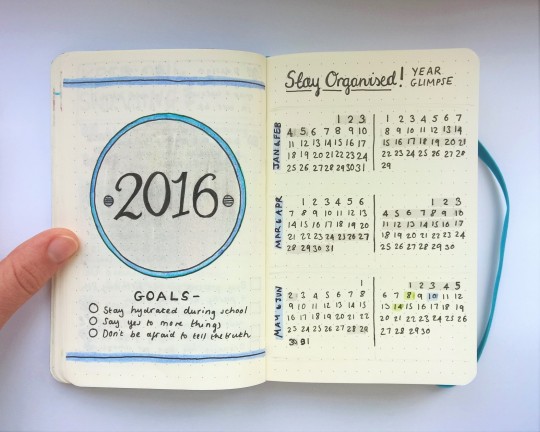 2016
GOALS-
Stay hydrated during school
Say yes to more things
Don't be afraid to tell the truth
Stay Organised! YEAR
GLIMPSE
JAN & FEB
1 2 3
4 5 6 7 8 9 10
11 12 13 14 15 16 17
18 19 20 21 22 23 24
25 26 27 28 29 30 31
1 2 3 4 5 6 7
8 9 10 11 12 13 14
15 16 17 18 19 20 21
22 23 24 25 26 27 28
29
MAR & APR
1 2 3 4 5 6
7 8 9 10 11 12 13
14 15 16 17 18 19 20
21 22 23 24 25 26 27
28 29 30 31
1 2 3
4 5 6 7 8 9 10
11 12 13 14 15 16 17
18 19 20 21 22 23 24
25 26 27 28 29 30
MAY & JUN
1
2 3 4 5 6 7 8
9 10 11 12 13 14 15
16 17 18 19 20 21 22
23 24 25 26 27 28 29
30 31
1 2 3 4 5
6 7 8 9 10 11 12
13 14 15 16 17 18 19
20 21 22 23 24 25 26
27 28 29 30